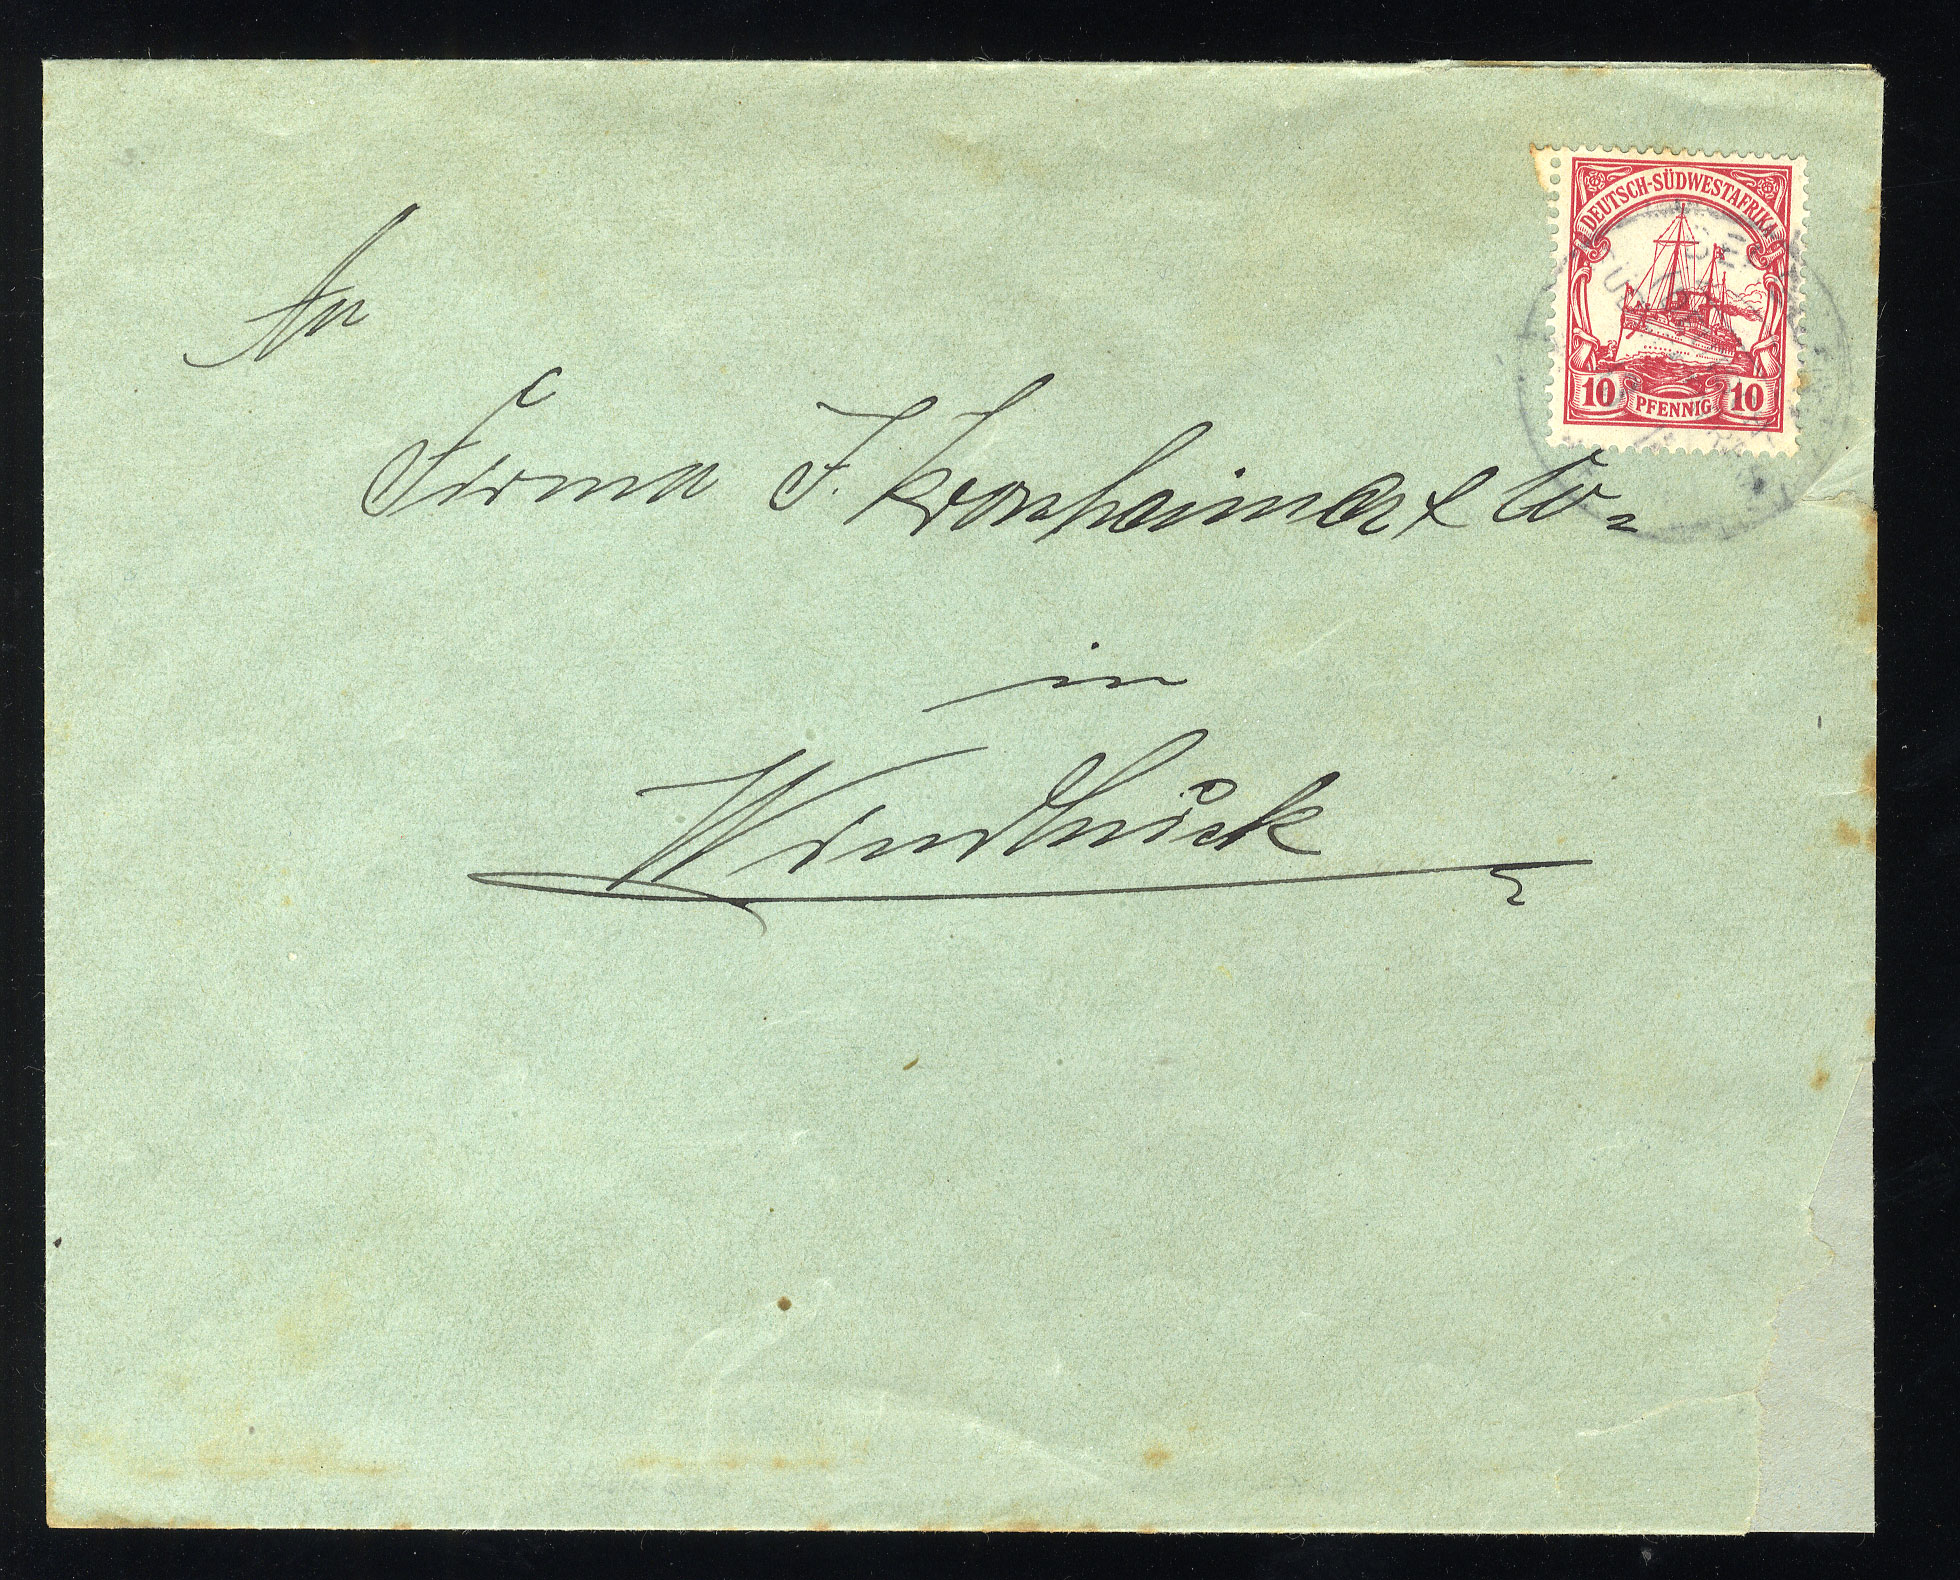 DEUTSCH-SÜDWESTAFRIKA
10 PFENNIG 10
An
Firma F. Kronheimer & Co.
in
Windhuk